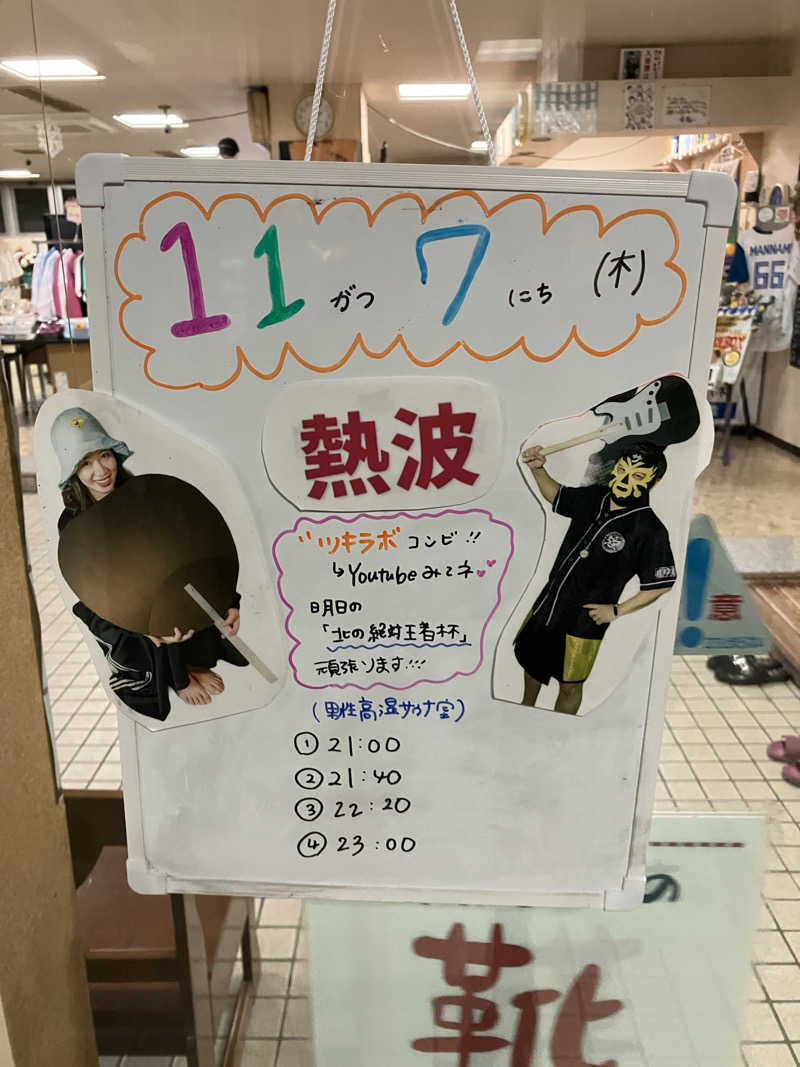 11がつ7にち(木)
熱波
"ツキラボコンビ!!
↳Youtubeみてネ
明日の
「北の絶対王者杯」
頑張ります!!!
(男性高湿サウナ室)
① 21:00
② 21:40
③ 22:20
④ 23:00
MANNAMI
66
意
の
靴